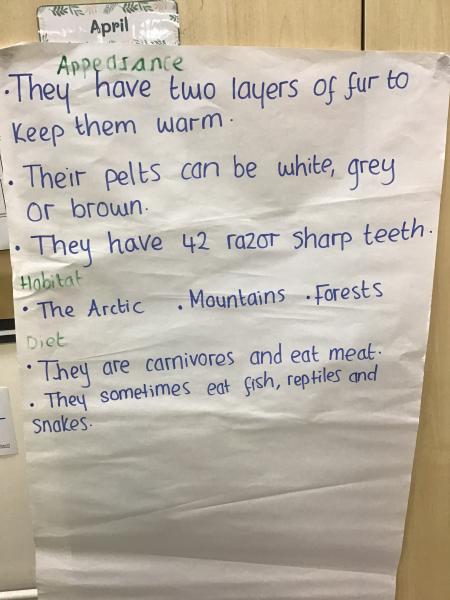 April
Appearance
• They have two layers of fur to
keep them warm.
• Their pelts can be white, grey
or brown.
• They have 42 razor sharp teeth.
Habitat
• The Arctic • Mountains • Forests
Diet
• They are carnivores and eat meat.
• They sometimes eat fish, reptiles and
snakes.